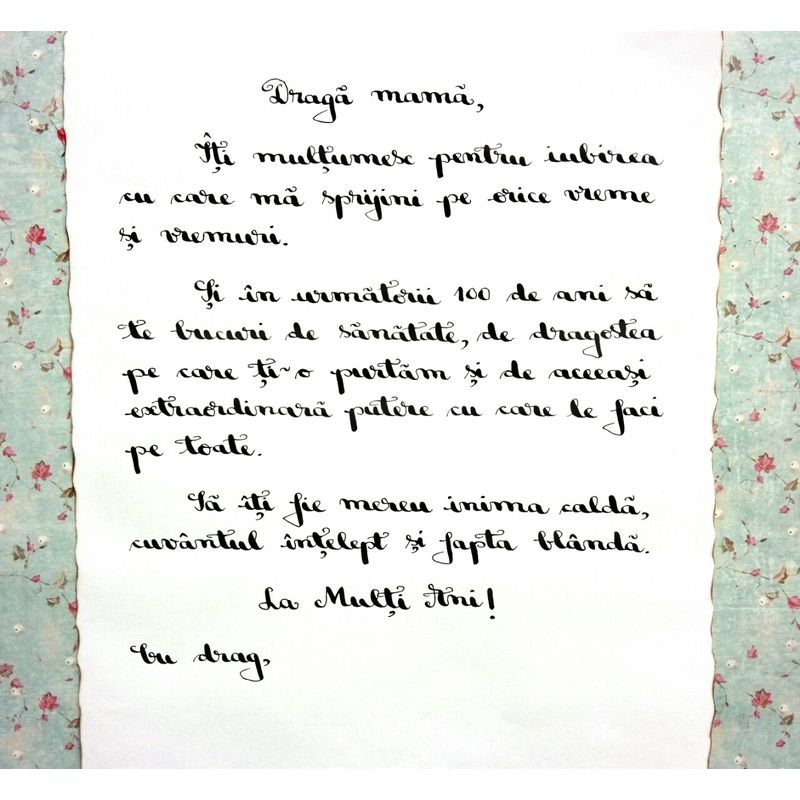 Dragă mamă,
Îți mulțumesc pentru iubirea
cu care mă sprijini pe orice vreme
și vremuri.
Și în următorii 100 de ani să
te bucuri de sănătate, de dragostea
pe care ți-o purtăm și de aceeași
extraordinară putere cu care le faci
pe toate.
Să îți fie mereu inima caldă,
cuvântul înțelept și fapta blândă.
La Mulți Ani!
Cu drag,